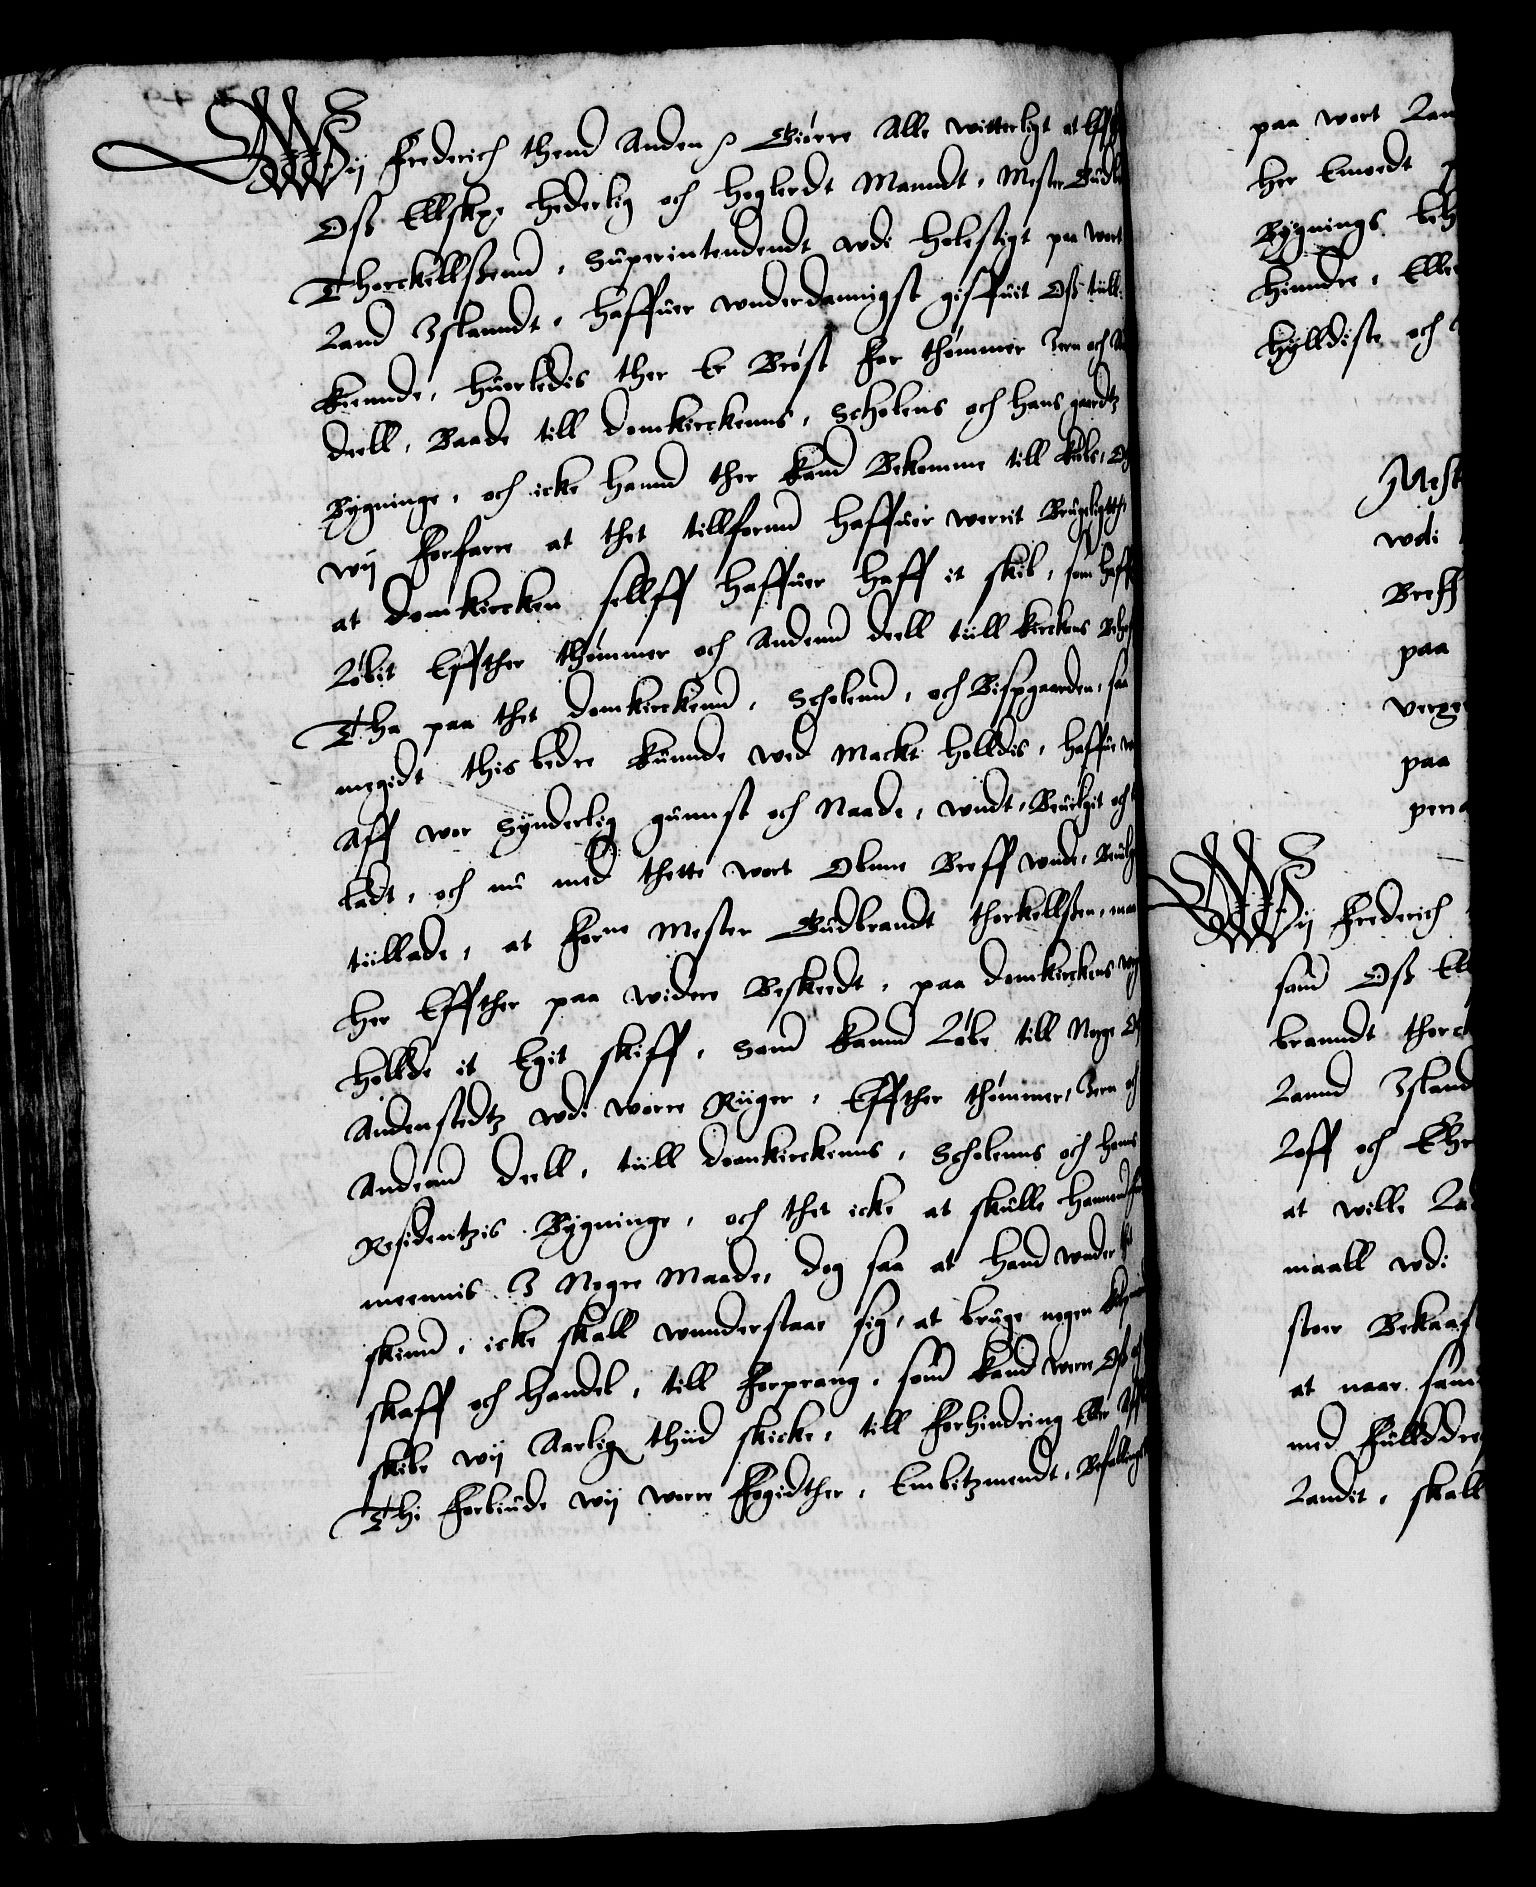 Wij Frederich thend Anden p Giørre Alle witterligt at Efft
Oss Elskxe hederlig och høglerdt Manndt, Mester Gudb
Thorckillssenn, Superintendendt wdi holestigt paa wort
Land Islanndt, haffuer wnderdannigst giffuit Oss till
kiennde, huorledis ther Er Brøst for thømmer Jern och
deell, Baade till domkirckenns, Scholens och hans gaardtz
Bygninge, och icke hannd ther kand Bekomme till kiøbs, Och
wij forfarre at thet tillfornn haffuer werrit Brugeligt
at domkircken sellff haffuer hafft it skib, som haff
Løbit Effther thømmer och Andenn deell till kirckens Beho
Tha paa thet domkirckenn, Scholenn, och Bispgaarden, saa
megidt this bedre kunnde wed Mackt holldis, haffue w
Aff wor Synderlig gunnst och Naade, wndt, Beuilgit och
ladt, och nu med thette wort Obne Breff wnde, Beuilge
tillade, at forne Mester Gudbrandt thorkillssen, maa
her Effther paa widere Beskeedt, paa domkirckens
hollde it Egit skiff, Som kannd Løbe till Norge
Andenstedtz wdi worre Riiger, Effther thømmer, Jern och
Andenn deell, till domkirckenns, Scholenns och hanns
Residentzis Bygninge, och thet icke at skulle hannem
meennis I Nogre Maade, dog saa at hand wnder
skinn, icke skall wnnderstaae sig, at bruge nogen kiøpmand
skaff och handel, till forprang, som kand were Oss och
skibe wij Aarlig thiid skicke, till forhindring Eller
Thi forbiude wij worre fogidther, Embitzmendt, Befallings
paa wort Lan
her Emodt
Bygnings beh
hinndre, Elle
hylldiste och
Mest
wdi
Breff
paa
paa
Wij Frederich
som Oss Ell
branndt thorc
Lannd Island
Loff och Ehr
at wille La
maall wdi
stoer Bekaast
at naar sam
med fullddre
Landit, skall